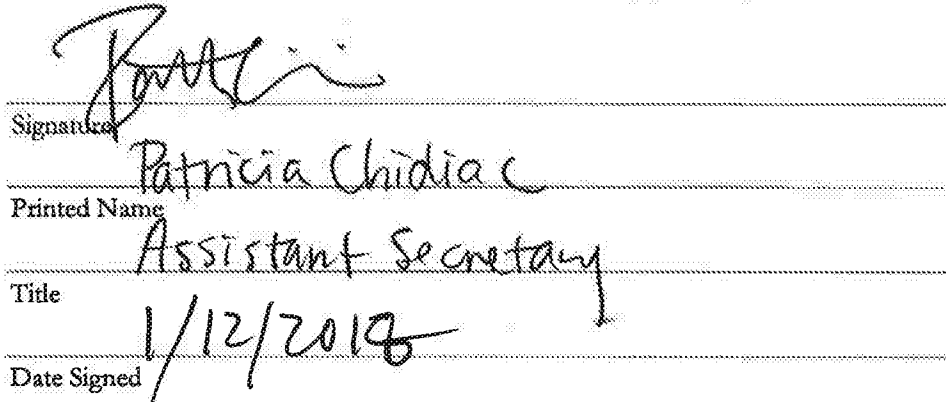 Signature
Patricia Chidiac
Printed Name
Assistant Secretary
Title
1/12/2018
Date Signed